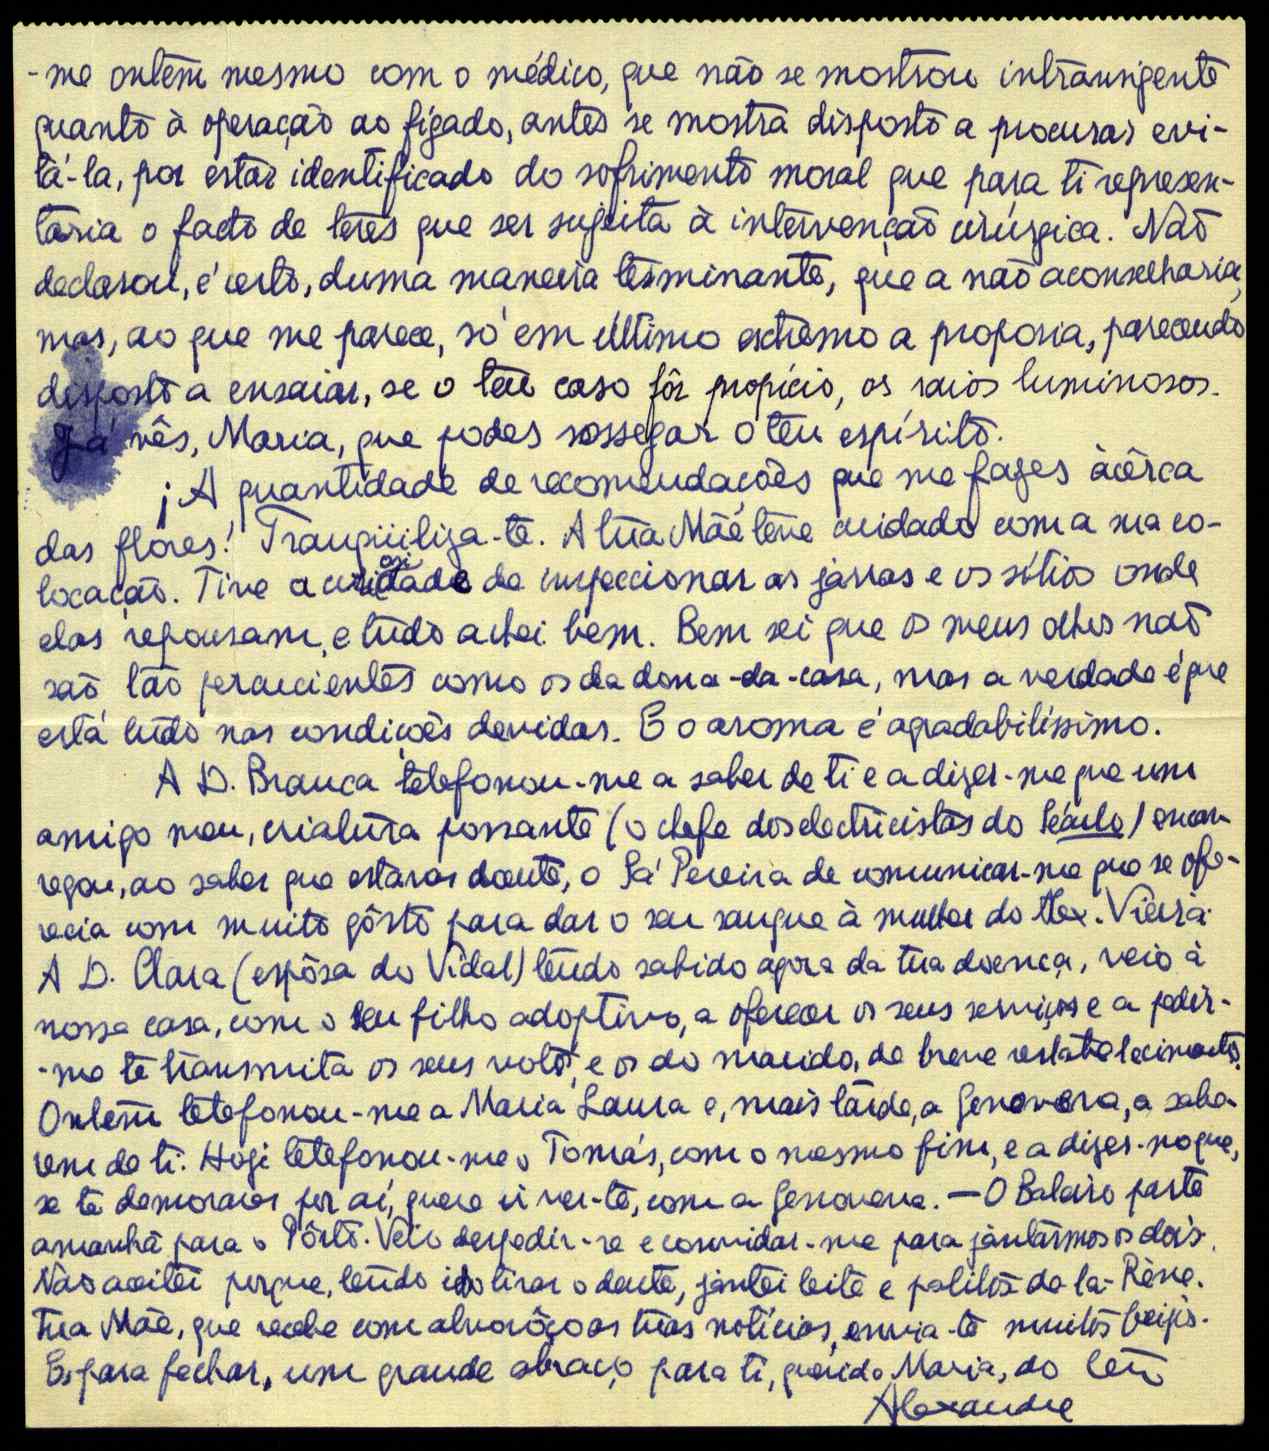 -me ontem mesmo com o médico, que não se mostrou intransigente
quanto à operação ao fígado, antes se mostra disposto a procurar evi-
tá-la, por estar identificado do sofrimento moral que para ti represen-
taria o facto de teres que ser sujeita à intervenção cirúrgica. Não
declarou, é certo, duma maneira terminante, que a não aconselharia,
mas, ao que me parece, só em último extremo a proporia, parecendo
disposto a ensaiar, se o teu caso fôr propício, os raios luminosos.
Já vês, Maria, que podes sossegar o teu espírito.
¡A quantidade de recomendações que me fazes àcêrca
das flores! Tranqüiliza-te. A tua Mãe teve cuidado com a sua co-
locação. Tive a curiosidade de inspeccionar as jarras e os sítios onde
elas repousam, e tudo achei bem. Bem sei que os meus olhos não
são tão percucientes como os da dona-da-casa, mas a verdade é que
está tudo nas condições devidas. E o aroma é agradabilíssimo.
A D. Branca telefonou-me a saber de ti e a dizer-me que um
amigo meu, criatura possante (o chefe dos electricistas do Século) encar-
regou, ao saber que estavas doente, o Sá Pereira de comunicar-me que se ofe-
recia com muito gôsto para dar o seu sangue à mulher do Alex. Vieira.
A D. Clara (espôsa do Vidal) tendo sabido agora da tua doença, veio à
nossa casa, com o seu filho adoptivo, a oferecer os seus serviços e a pedir-
-me te transmita os seus votos, e os do marido, de breve restabelecimento.
Ontem telefonou-me a Maria Laura e, mais tarde, a Genoveva, a sabe-
rem de ti. Hoje telefonou-me o Tomás, com o mesmo fim, e a dizer-me que,
se te demorares por aí, quere ir ver-te, com a Genoveva. — O Baleiro parte
amanhã para o Pôrto. Veio despedir-se e convidar-me para jantarmos os dois.
Não aceitei porque, tendo ido tirar o dente, jantei leite e palitos de la-Reine.
Tua Mãe, que recebe com alvorôço as tuas notícias, envia-te muitos beijos.
E, para fechar, um grande abraço para ti, querida Maria, do teu
Alexandre